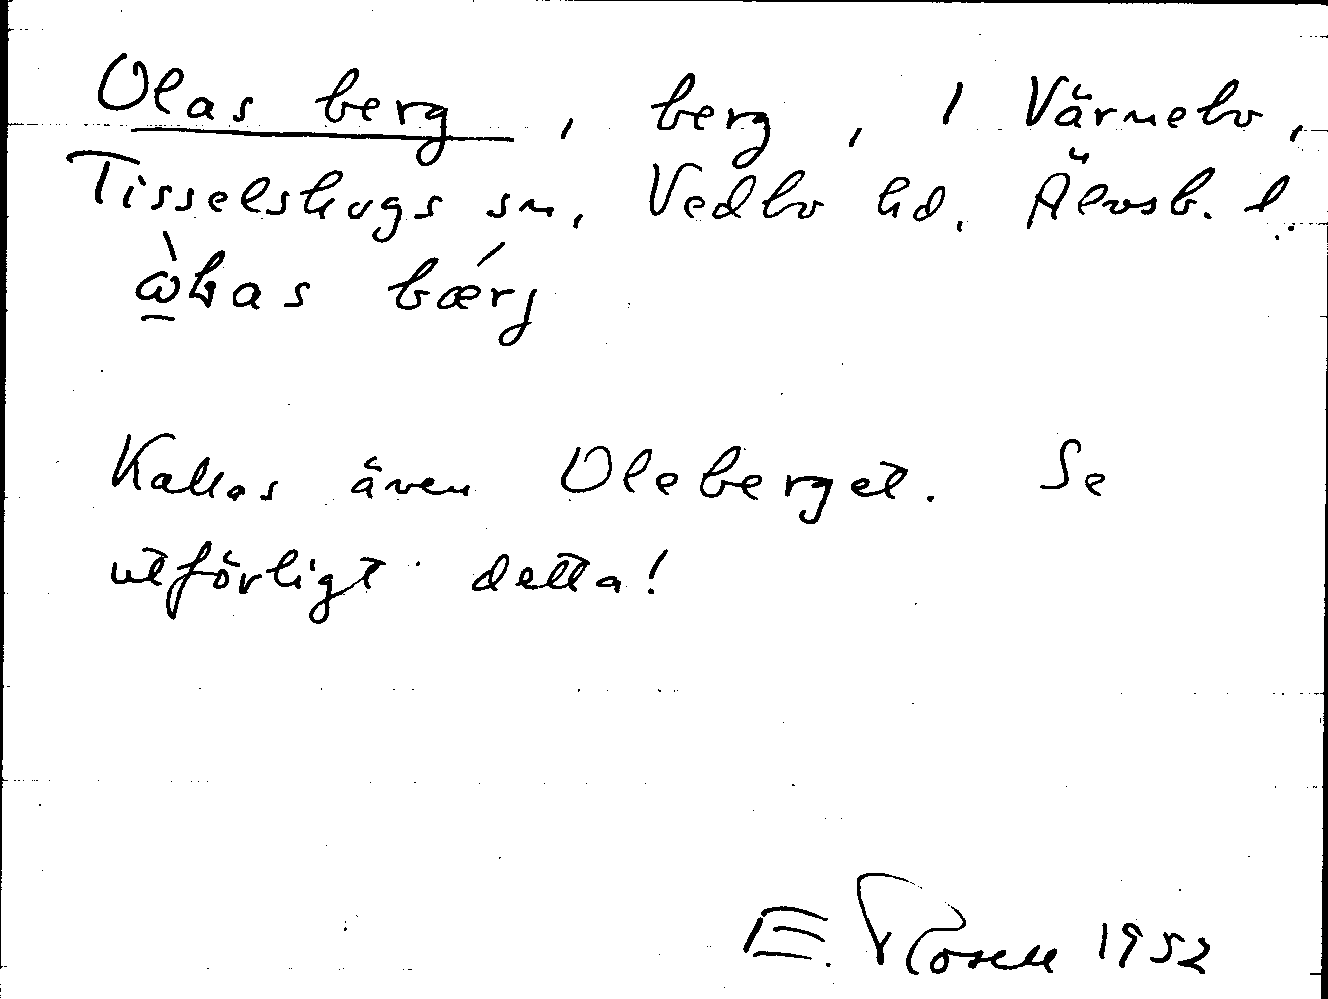 Olas berg, berg, 1 Värmebo,
Tisselskogs sn, Vedbo hd. Älvsb. l.
bærj
Kallas även Oleberget. Se
utförligt detta!
E. Rosell 1952